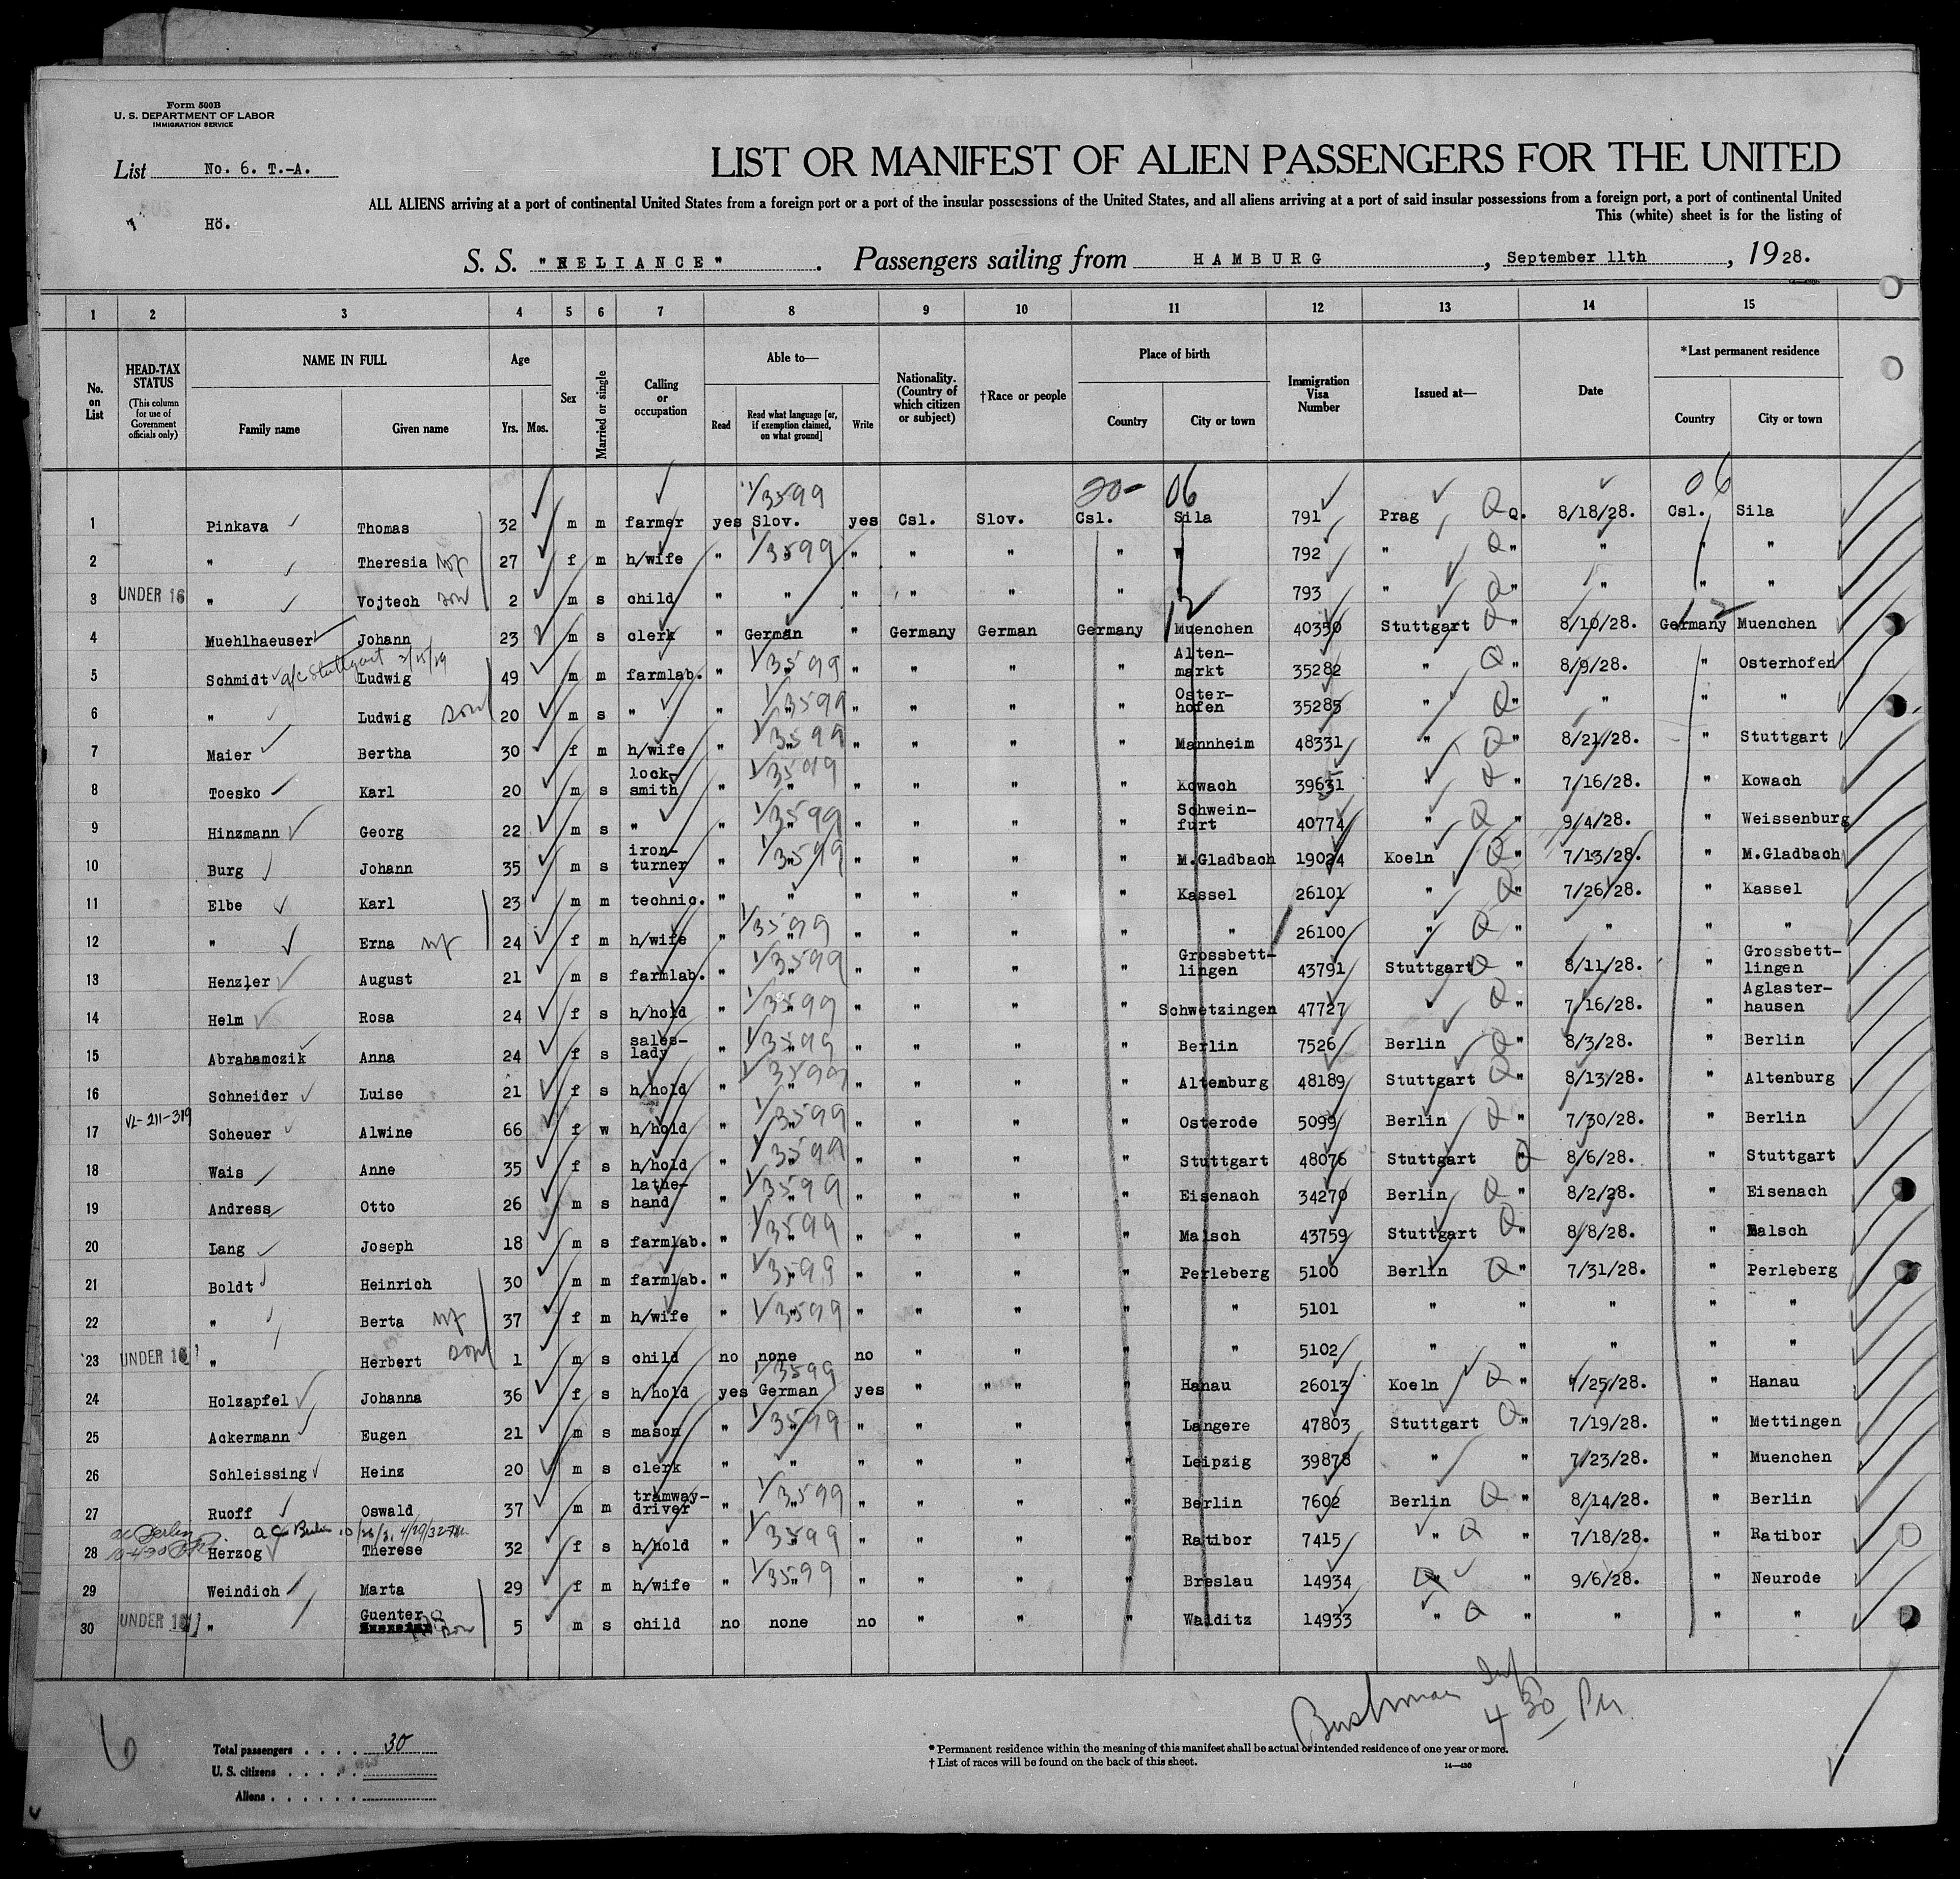 Form 500B
U. S. DEPARTMENT OF LABOR
IMMIGRATION SERVICE
List No. 6. T.-A.
LIST OR MANIFEST OF ALIEN PASSENGERS FOR THE UNITED
ALL ALIENS arriving at a port of continental United States from a foreign port or a port of the insular possessions of the United States, and all aliens arriving at a port of said insular possessions from a foreign port, a port of continental United
Hö. This (white) sheet is for the listing of
S. S. "RELIANCE". Passengers sailing from HAMBURG, September 11th, 1928.
1 2 3 4 5 6 7 8 9 10 11 12 13 14 15
No. on List
HEAD-TAX STATUS (This column for use of Government officials only)
NAME IN FULL Family name Given name
Age Yrs. Mos.
Sex
Married or single
Calling or occupation
Able to— Read Read what language [or, if exemption claimed, on what ground] Write
Nationality. (Country of which citizen or subject)
†Race or people
Place of birth Country City or town
Immigration Visa Number
Issued at—
Date
*Last permanent residence Country City or town
1/3599 20- 06 06
1 Pinkava Thomas 32 m m farmer yes Slov. yes Csl. Slov. Csl. Sila 791 Prag Q Q. 8/18/28. Csl. Sila
2 " Theresia wf 27 f m h/wife " 1/3599 " " " " " " 792 " Q " " " "
3 UNDER 16 " Vojtech son 2 m s child " " " " " " 793 " Q " " " "
4 Muehlhaeuser Johann 23 m s clerk " German " Germany German Germany Muenchen 40350 Stuttgart Q " 8/10/28. Germany Muenchen
a/c Stuttgart 3/15/29
5 Schmidt Ludwig 49 m m farmlab. " 1/3599 " " " " Alten-markt 35282 " Q " 8/9/28. " Osterhofen
6 " Ludwig son 20 m s " " 1/3599 " " " " Oster-hofen 35283 " Q " " " "
7 Maier Bertha 30 f m h/wife " 1/3599 " " " " Mannheim 48331 " Q " 8/21/28. " Stuttgart
8 Toesko Karl 20 m s lock-smith " 1/3599 " " " " Kowach 39631 " Q " 7/16/28. " Kowach
9 Hinzmann Georg 22 m s " " 1/3599 " " " " Schwein-furt 40774 " Q " 9/4/28. " Weissenburg
10 Burg Johann 35 m s iron-turner " 1/3599 " " " " M.Gladbach 19024 Koeln Q " 7/13/28. " M.Gladbach
11 Elbe Karl 23 m m technic. " " " " " " Kassel 26101 " Q " 7/26/28. " Kassel
12 " Erna wf 24 f m h/wife " 1/3599 " " " " " 26100 " Q " " " "
13 Henzler August 21 m s farmlab. " 1/3599 " " " " Grossbett-lingen 43791 Stuttgart Q " 8/11/28. " Grossbett-lingen
14 Helm Rosa 24 f s h/hold " 1/3599 " " " " Schwetzingen 47727 " Q " 7/16/28. " Aglaster-hausen
15 Abrahamczik Anna 24 f s sales-lady " 1/3599 " " " " Berlin 7526 Berlin Q " 8/3/28. " Berlin
16 Schneider Luise 21 f s h/hold " 1/3599 " " " " Altenburg 48189 Stuttgart Q " 8/13/28. " Altenburg
17 VL-211-319 Scheuer Alwine 66 f w h/hold " 1/3599 " " " " Osterode 5099 Berlin Q " 7/30/28. " Berlin
18 Wais Anne 35 f s h/hold " 1/3599 " " " " Stuttgart 48076 Stuttgart Q " 8/6/28. " Stuttgart
19 Andress Otto 26 m s lathe-hand " 1/3599 " " " " Eisenach 34270 Berlin Q " 8/2/28. " Eisenach
20 Lang Joseph 18 m s farmlab. " 1/3599 " " " " Malsch 43759 Stuttgart Q " 8/8/28. " Malsch
21 Boldt Heinrich 30 m m farmlab. " 1/3599 " " " " Perleberg 5100 Berlin Q " 7/31/28. " Perleberg
22 " Berta wf 37 f m h/wife " 1/3599 " " " " " 5101 " " " " "
23 UNDER 16 " Herbert son 1 m s child no none no " " " " 5102 " " " " "
24 Holzapfel Johanna 36 f s h/hold yes 1/3599 German yes " " " " Hanau 26013 Koeln Q " 7/25/28. " Hanau
25 Ackermann Eugen 21 m s mason " 1/3599 " " " " Langere 47803 Stuttgart Q " 7/19/28. " Mettingen
26 Schleissing Heinz 20 m s clerk " " " " " " Leipzig 39878 " " 7/23/28. " Muenchen
27 Ruoff Oswald 37 m m tramway-driver " 1/3599 " " " " Berlin 7602 Berlin Q " 8/14/28. " Berlin
a/c Berlin
28 Herzog Therese 32 f s h/hold " 1/3599 " " " " Ratibor 7415 " Q " 7/18/28. " Ratibor
29 Weindich Marta 29 f m h/wife " 1/3599 " " " " Breslau 14934 " Q " 9/6/28. " Neurode
30 UNDER 16 " Guenter son 5 m s child no none no " " " Walditz 14933 " Q " " " "
Bushman Inf
4 30 PM
6
Total passengers . . . . 30
U. S. citizens . . . . .
Aliens . . . . . .
* Permanent residence within the meaning of this manifest shall be actual or intended residence of one year or more.
† List of races will be found on the back of this sheet.
14—430